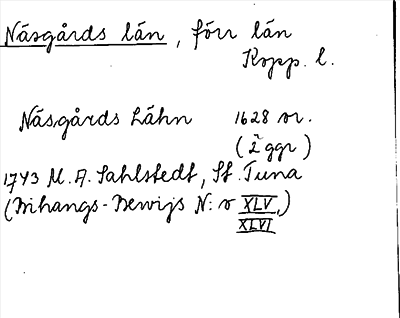 Näsgårds län, förr län
Kopp. l.
Näsgårds Lähn 1628 or.
(2 ggr)
1743 M. A. Sahlstedt, St. Tuna
(Bihangs-Bewijs N:o XLV,)
XLVI